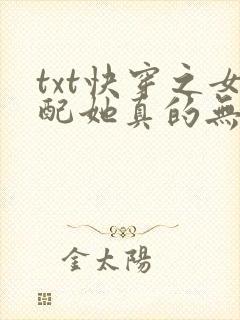 txt快穿之女
配她真的無
金太陽